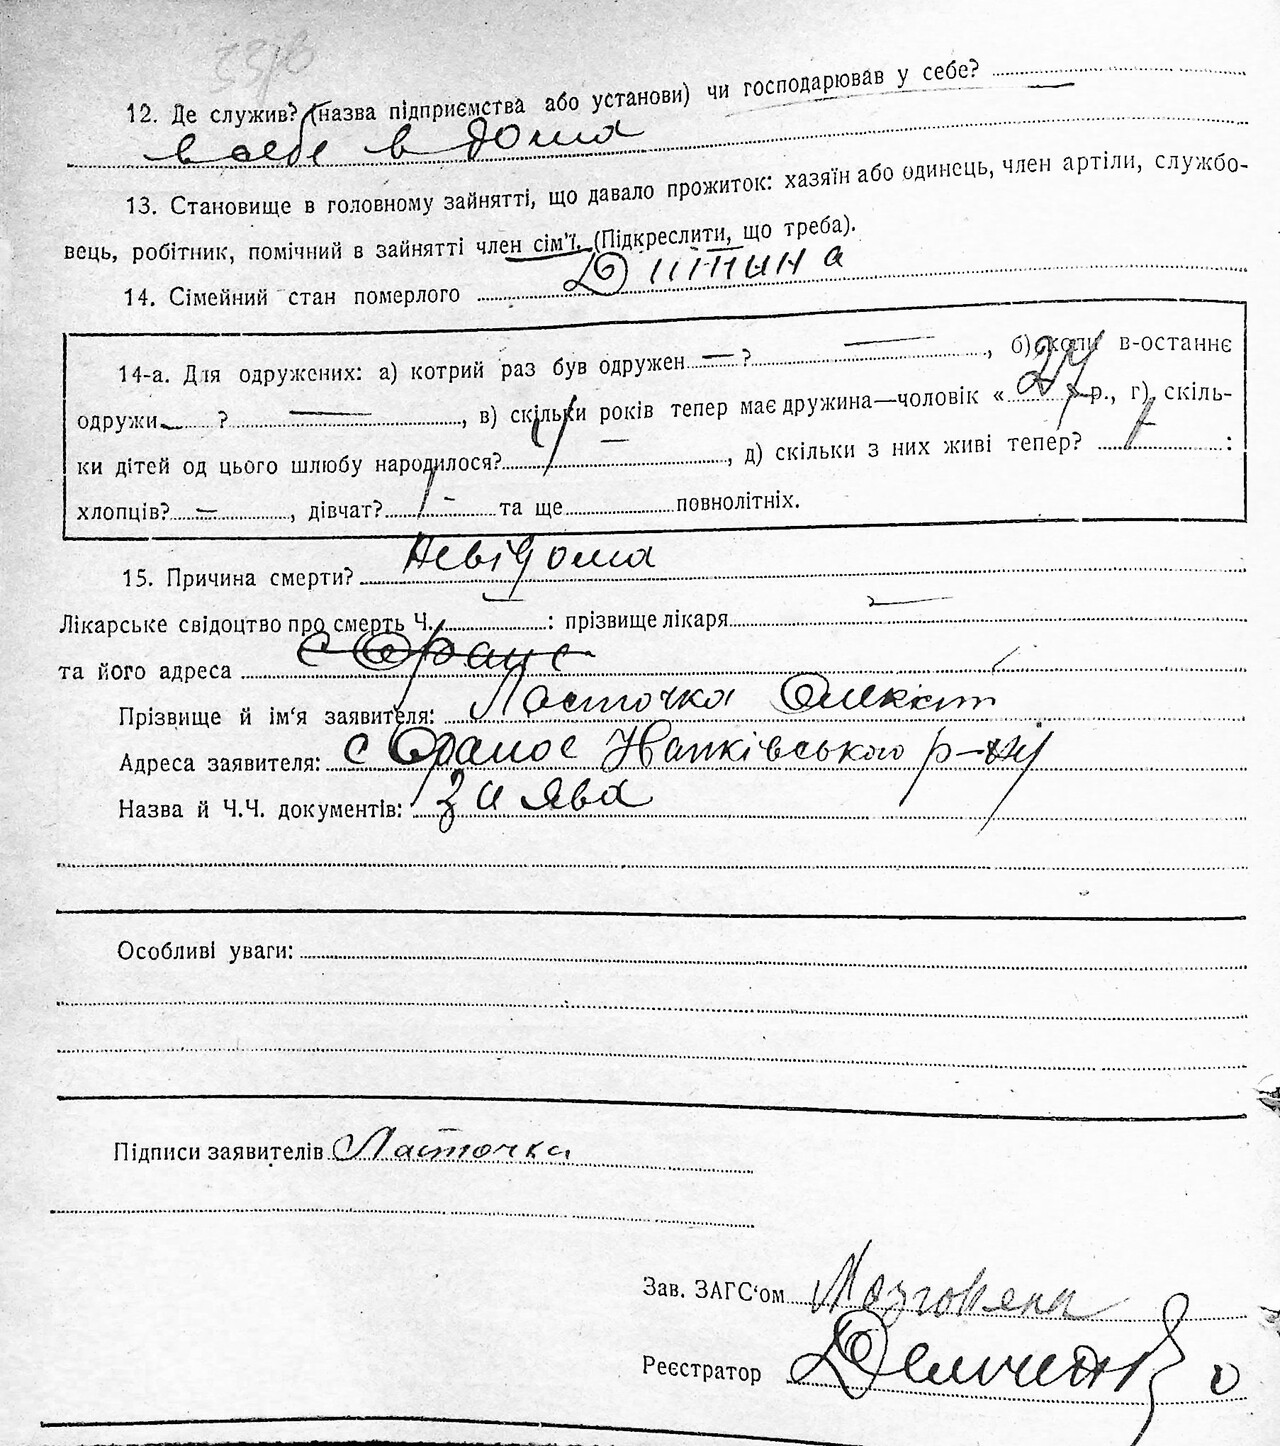 12. Де служив? (назва підприємства або установи) чи господарював у себе?
в себе в дома
13. Становище в головному зайнятті, що давало прожиток: хазяїн або одинець, член артіли, службо-
вець, робітник, помічний в зайнятті член сім'ї. (Підкреслити, що треба).
14. Сімейний стан померлого Дитина
14-а. Для одружених: а) котрий раз був одружен — ? —, б) коли в-останнє
одружи— ? —, в) скільки років тепер має дружина—чоловік « р., г) скіль-
ки дітей од цього шлюбу народилося? —, д) скільки з них живі тепер? :
хлопців? —, дівчат? — та ще повнолітніх.
15. Причина смерти? невідома
Лікарське свідоцтво про смерть Ч. — : прізвище лікаря —
та його адреса
Прізвище й ім'я заявителя: Ласточка
Адреса заявителя: с Оране Іванківського р-ну
Назва й Ч.Ч. документів: заява
Особливі уваги:
Підписи заявителів Ласточка
Зав. ЗАГС'ом
Реєстратор Демченко